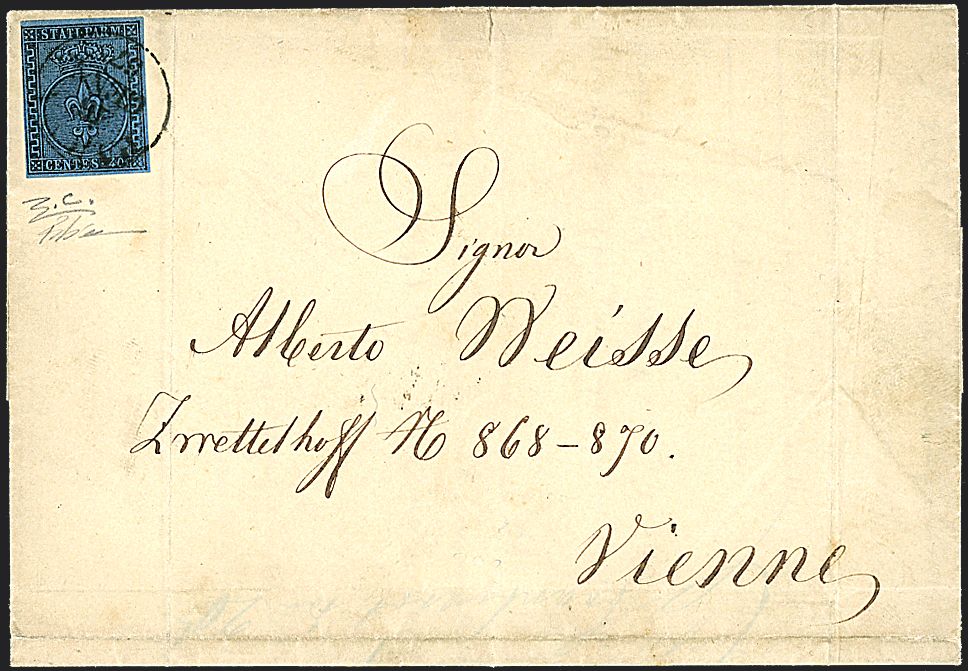 STATI PARM.
CENTES. 40
Z.C.
Signor
Alberto Weisse
Zwettelhoff No 868-870.
Vienne